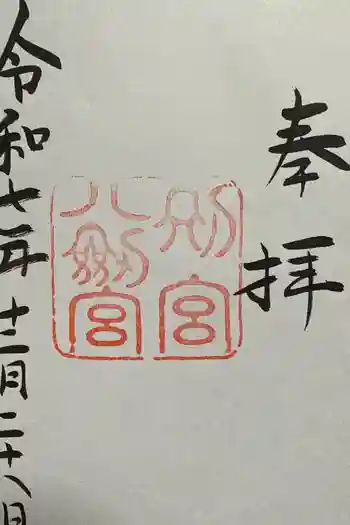 奉拝
別宮
八剱宮
令和七年十二月二十八日